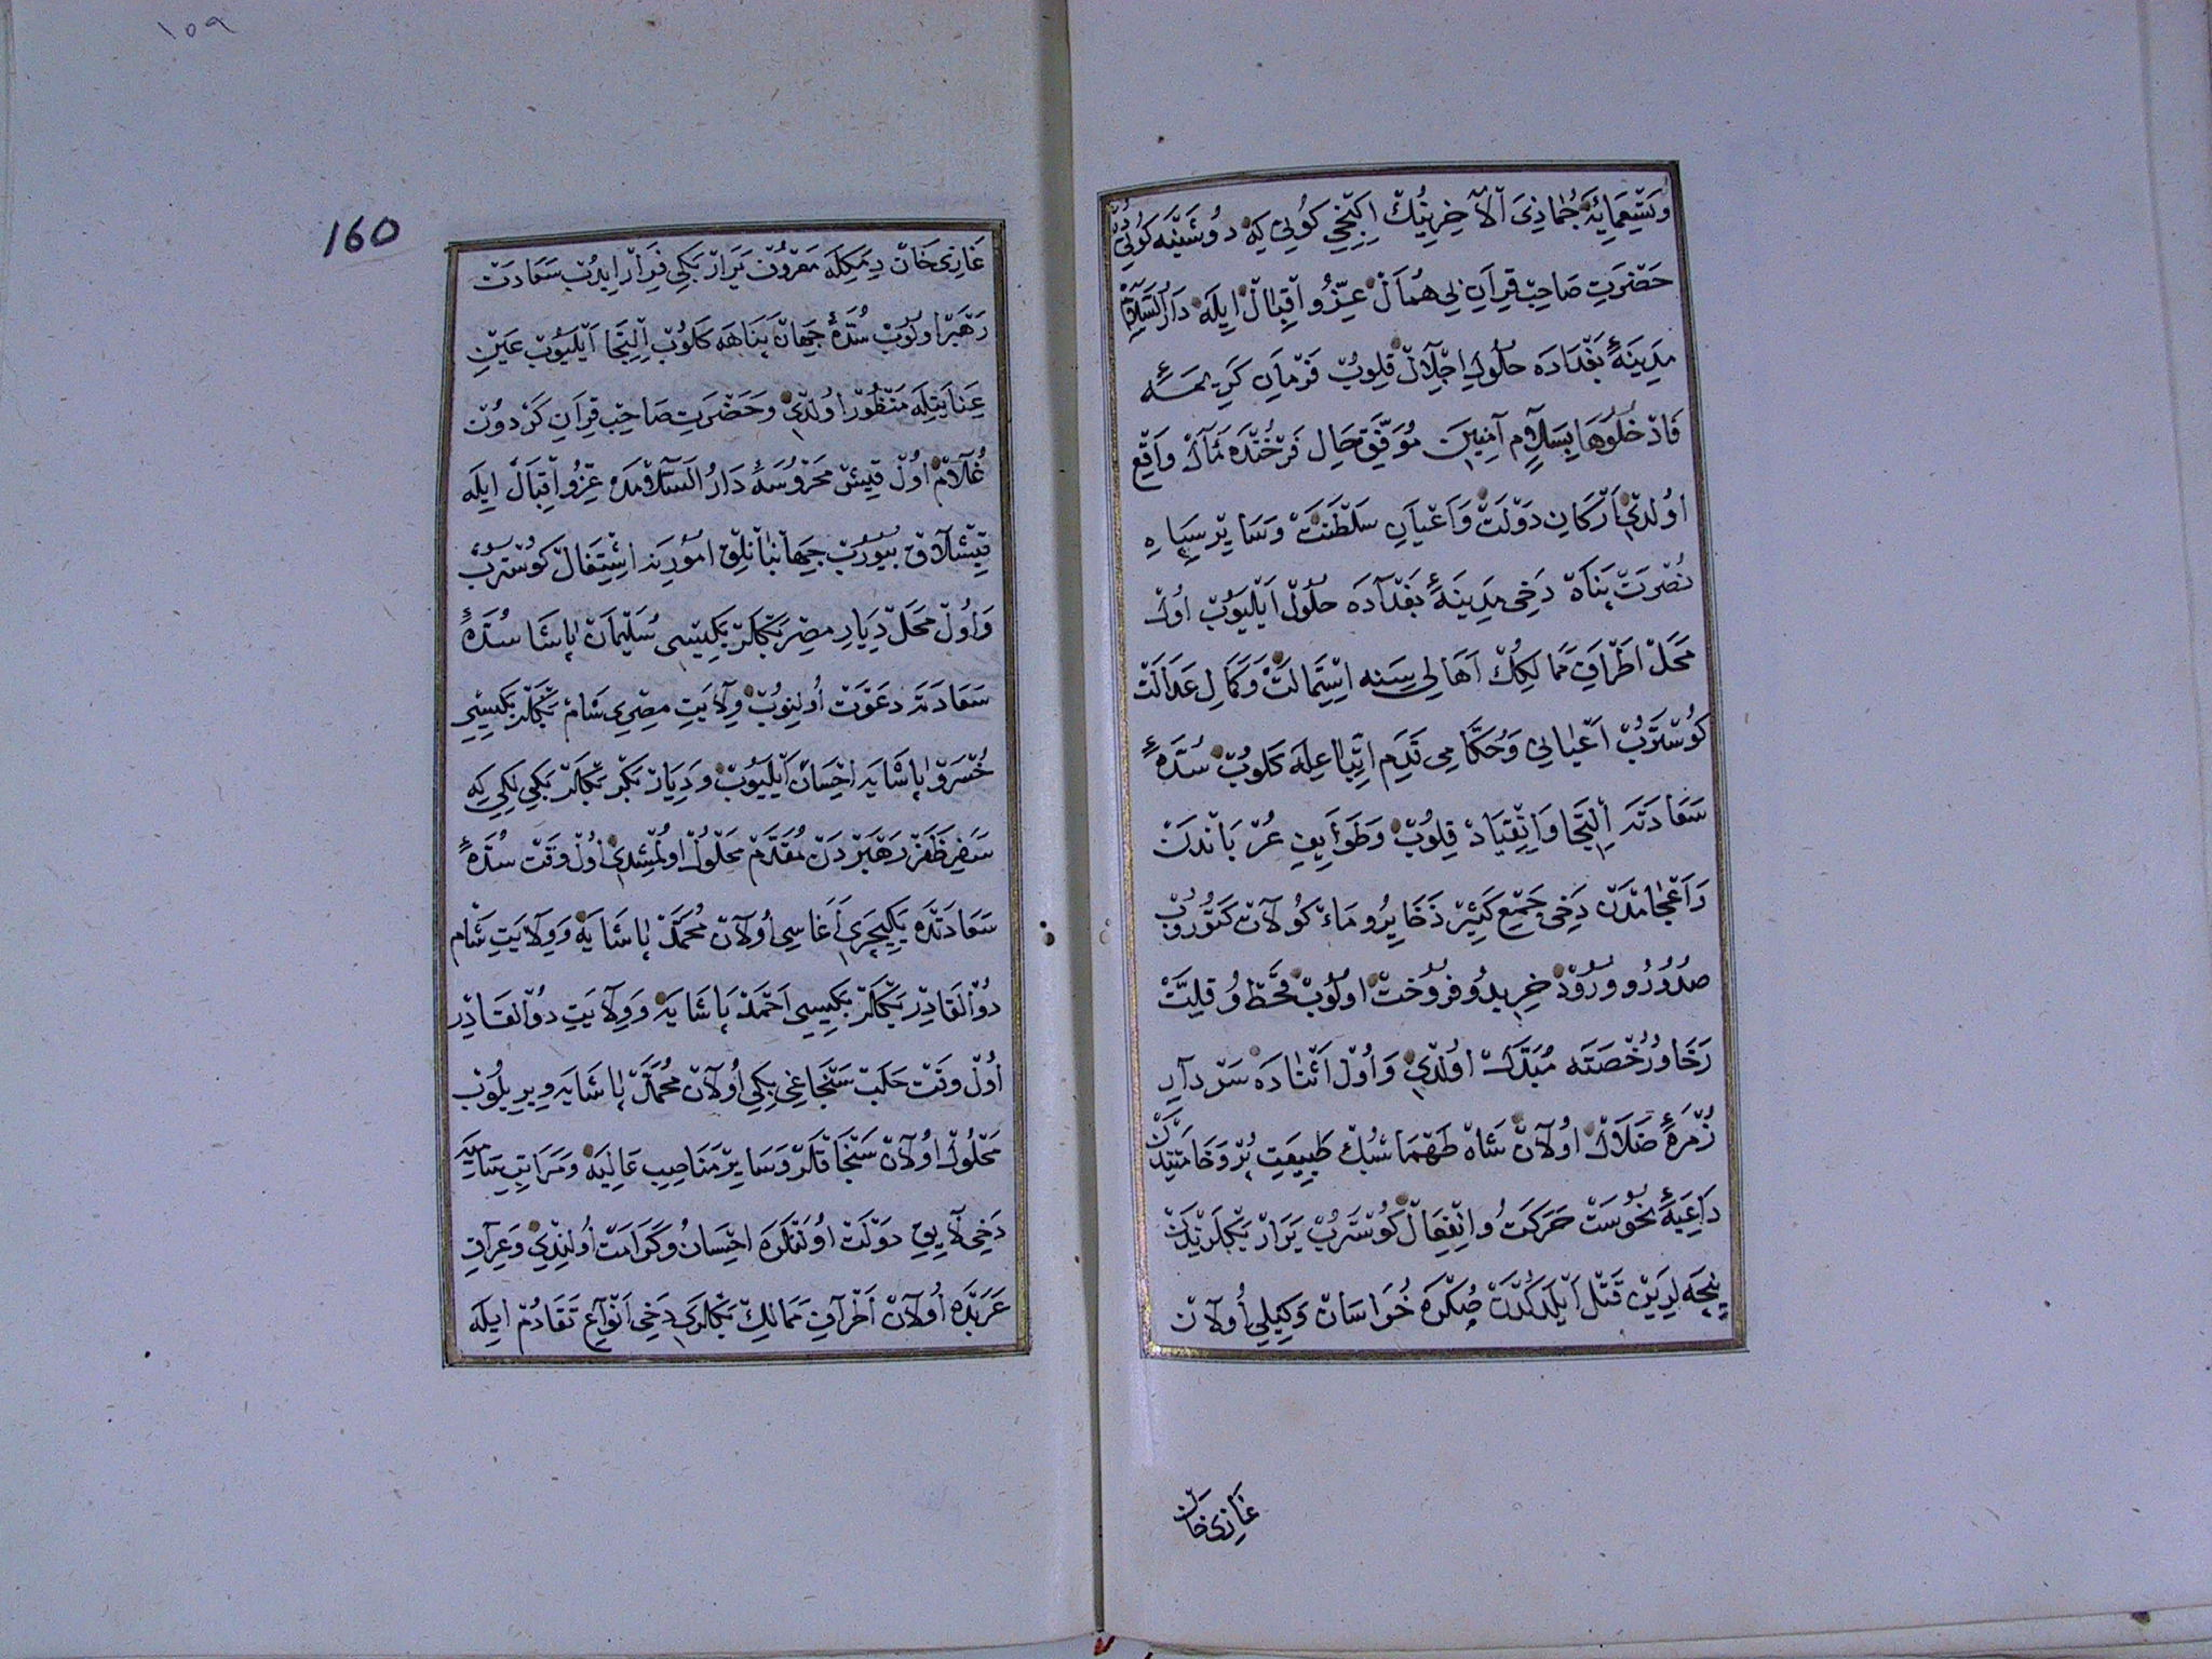 وَتِسْعِمَائِةَ جُمَاذِيَ اْلآخِرِينُكْ اِكِنْجِي كُونِي كِه دُوشَنْبَه كُونِيدُرْ
حَضْرَتِ صَاحِبْ قِرَانِ بِي هُمَالْ عِزُّو اَقْبَالْ اِيلَه دَارُ السَّلاَمْ
مَدِينَهٔ بَغْدَادَه حُلُولِ اِجْلاَلْ قِلُوبْ فَرْمَانِ كَرِيمَهٔ
فَادْخُلُوهَا بِسَلاَمٍ آمِنِينَ مُوَفَّقِ حَالِ فَرْخُنْدَه مَآلْ وَاقِعْ
اوُلدِي اَرْكَانِ دَوْلَتْ وَاَعْيَانِ سَلْطَنَتْ وَسَايِرْ سِپَاهِ
نُصْرَتْ پَنَاهْ دَخِي مَدِينَهٔ بَغْدَادَه حُلُولْ اَيْلَيُوبْ اُولْ
مَحَلْ اَطْرَافِ مَمَالِكِكْ اَهَالِي سِنَه اِسْتِمَالَتْ وَكَمَالِ عَدَالَتْ
كُوسْتَرُبْ اَعْيَانِي وَحُكَّامِي قَدَمِ اِتِّبَاعِلَه كَلُوبْ سُدَّهٔ
سَعَادَتَه اِلْتِجَا وَاِنْقِيَادْ قِلُوبْ وَطَوَايِفِ عُرْبَانْدَنْ
وَاَعْجَامْدَنْ دَخِي جَمْعِ كَثِيرْ ذَخَايِرُو مَاءْكُولاَتْ كَتُورُوبْ
صُدُورُو وُرُودْ خَرِيدُو فُرُوخْتْ اوُلُوبْ قَحْطُ وُ قِلَّتْ
رَخَا وُرُخْصَتَه مُبَدَّلْ اوُلْدِي وَاُوْلْ اَثْنَادَه سَرْدَارِ
زُمْرَهٔ ضَلاَلْ اوُلاَنْ شَاهْ طَهْمَاسْبُكْ طَبِيعَتِ پُرْ وَخَامَتِنْدَنْ
دَاعِيَهٔ نُحُوسَتْ حَرَكَتْ وُانْفِعَالْ كُوسْتَرُبْ يَرَارْ بَكْلَرْنِدَنْ
نِيجَه لَرِينْ قَتْلْ اَيْلَدُكْدَنْ صُكْرَه خُرَاسَانْ وَكِيلِي اُولاَنْ
غَازِي خَانْ
١٥٩
160
غَازِي خَانْ دِيمَكِلَه مَعْرُوفْ يَرَارْ بَكِي فِرَارْ ايدُبْ سَعَادَتْ
رَهْبَرْ اوُلُوبْ سُدَّهٔ جِهَانْ پَنَاهَه كَلُوبْ اِلْتِجَا اَيْلَيُوبْ عَيْنِ
عِنَايَتِلَه مَنْظُورْ اوُلْدِي وَحَضْرَتِ صَاحِبْ قِرَانِ كَرْدُونْ
غُلاَمْ اُوْلْ قِيشْ مَحْرُوسَهٔ دَارُ السَّلاَمْدَه عِزُّو اَقْبَالْ ايلَه
قِيشْلاَقْ بُيُورُبْ جِهَانْبَانْلِقْ اُمُورِينَه اِشْتِغَالْ كُوسْتَرُبْ
وَاُوْلْ مَحَلْ دِيَارِ مِصِرْ بَكْلَرْبَكِيسِي سُلَيْمَانْ پَاشَا سُدَّهٔ
سَعَادَتَه دَعْوَتْ اُولِنُوبْ وِلاَيَتِ مِصِرِي شَامْ بَكْلَرْبَكِيسِي
خُسْرَوْ پَاشَايَه اِحْسَانْ اَيْلَيُوبْ وَدِيَارْ بَكْرْ بَكْلَرْ بَكِي لِكِي كِه
سَفَرِ ظَفَرْ رَهْبَرْدَنْ مُقَدَّمْ مَحْلُولْ اوُلْمِشْدِي اُوْلْ وَقْتْ سُدَّهٔ
سَعَادَتْدَه يَكِيچَرِي اَغَاسِي اُولاَنْ مُحَمَّدْ پَاشَايَه وَوِلاَيَتِ شَامِ
ذُوْالْقَادِرْ بَكْلَرْبَكِيسِي اَحْمَدْ پَاشَايَه وَوِلاَيَتِ ذُوْالْقَادِرِ
اُوْلْ وَقْتْ حَلَبْ سَنْجَاغِي بِكِي اُولاَنْ مُحَمَّدْ پَاشَايَه وِيرِيلُوبْ
مَحْلُولْ اوُلاَنْ سَنْجَاقْلَرْ وَسَايِرْ مَنَاصِبِ عَالِيَه وَمَرَاتِبِ سَامِيَه
دَخِي لاَيِقِ دَوْلَتْ اوُلَنْلَرَه اِحْسَانُ وَكَرَامَتْ اُولِنْدِي وَعِرَاقِ
عَرَبْدَه اُولاَنْ اَطْرَافِ مَمَالِكْ بَكْلَرِي دَخِي اَنْوَاعِ تَقَادُمْ ايلَه